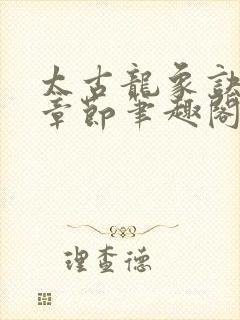 太古龍象訣
章節筆趣閣
理查德